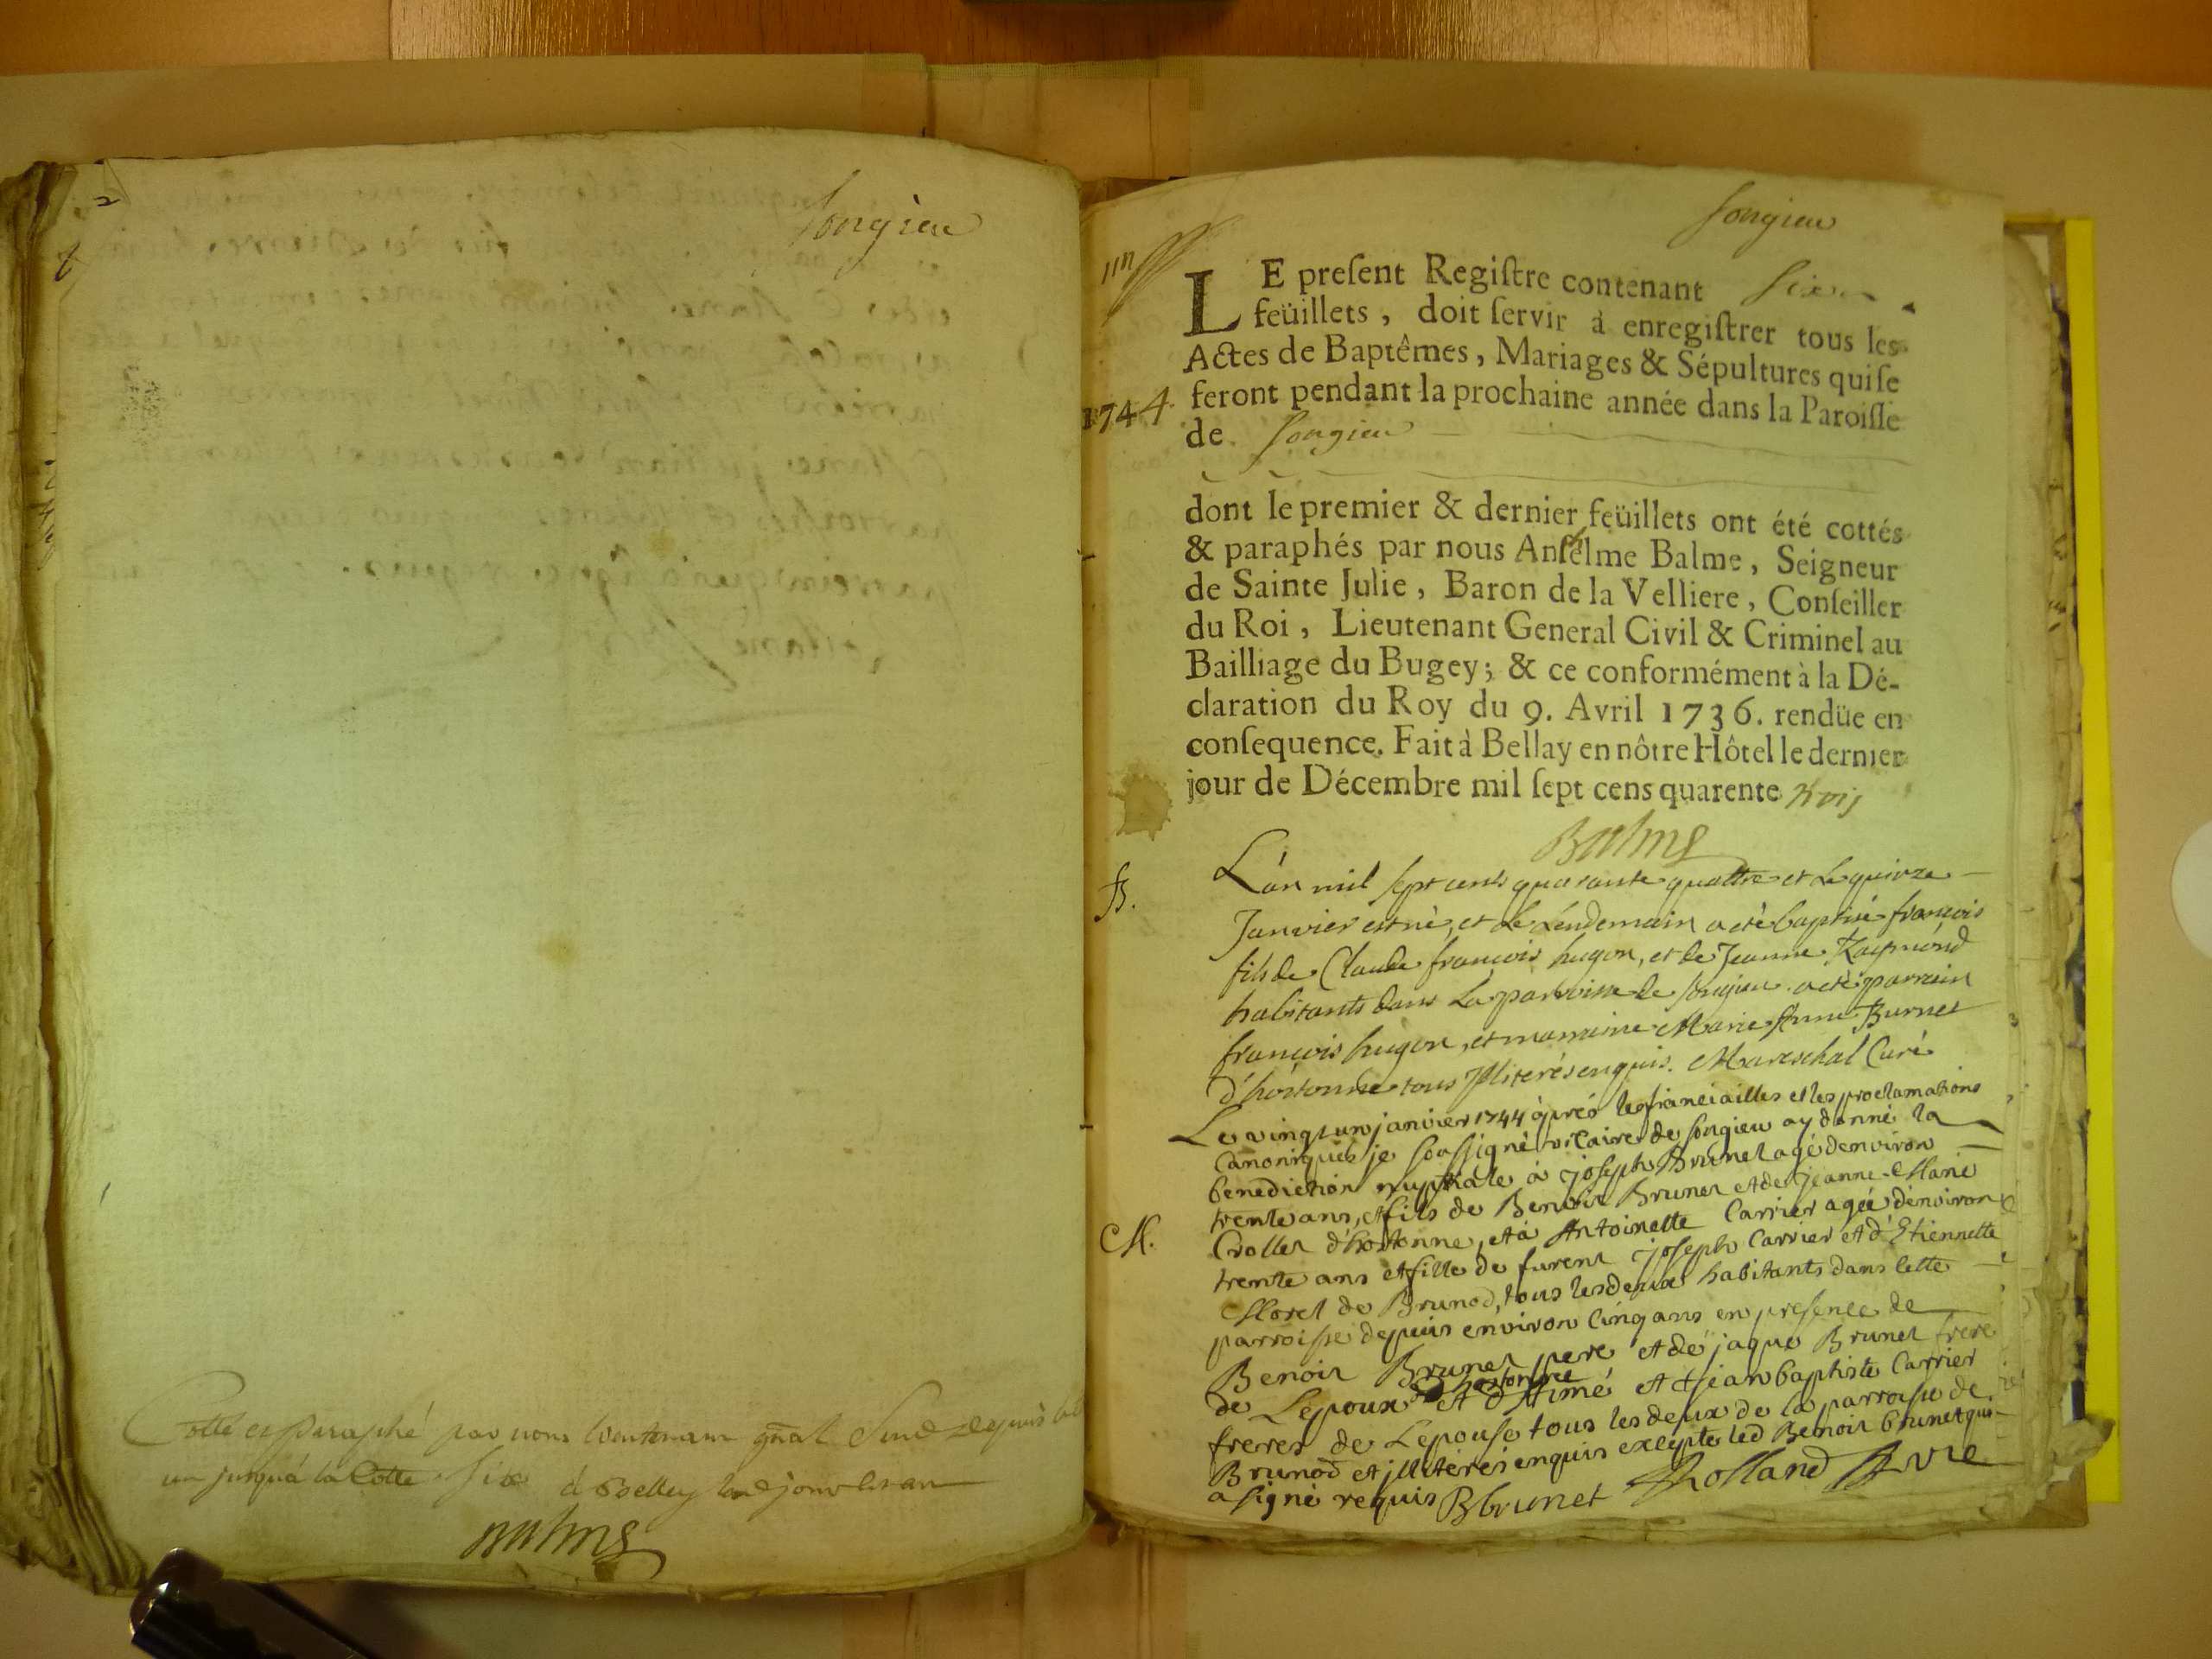 Songieu
Cotté et Paraphé par nous Lieutenant gñal Sund depuis la
un jusqu'à la Cotte Six à Belley led jour et an
Balme
Songieu
un
LE preſent Regiſtre contenant Six
feüillets, doit ſervir à enregiſtrer tous les
Actes de Baptêmes, Mariages & Sépultures qui ſe
1744 feront pendant la prochaine année dans la Paroiſſe
de Songieu
dont le premier & dernier feüillets ont été cottés
& paraphés par nous Anſelme Balme, Seigneur
de Sainte Julie, Baron de la Velliere, Conſeiller
du Roi, Lieutenant General Civil & Criminel au
Bailliage du Bugey; & ce conformément à la Dé-
claration du Roy du 9. Avril 1736. rendüe en
conſequence. Fait à Bellay en nôtre Hôtel le dernier
jour de Décembre mil ſept cens quarente trois
Balme
B. L'an mil sept cents quarante quattre et Le quinze
Janvier est nè, et le Lendemain a etè baptisé françois
fils de Claude françois hugon, et de Jeanne Raymond
habitants dans La parroisse de songieu. a etè parrain
françois hugon, et marraine Marie Anne Burnet
d'hostonne tous Illiterés enquis. Mareschal Curé
Le vingt un janvier 1744 après les fianciailles et les proclamations
canoniques je soussigné vicaire de songieu ay donné la
benediction nuptiale à joseph Brunet agé denviron
trente ans, et fils de Benoit Brunet et de jeanne Marie
M. Crollet d'hostonne, et à Antoinette Carrier agée denviron
trente ans et fille de furent joseph Carrier et d'Etiennette
Moret de Brunod, tous les deux habitants dans cette
parroisse depuis environ cinq ans en presence de
Benoit Brunet pere et de jaque Brunet frere
d'hostonne
de Lepoux et d'Aimé et jean baptiste Carrier
freres de Lepouse tous les deux de la parroisse de
Brunod et illiterés enquis excepte led Benoit brunet qui
a signé requis B brunet Rolland Vire